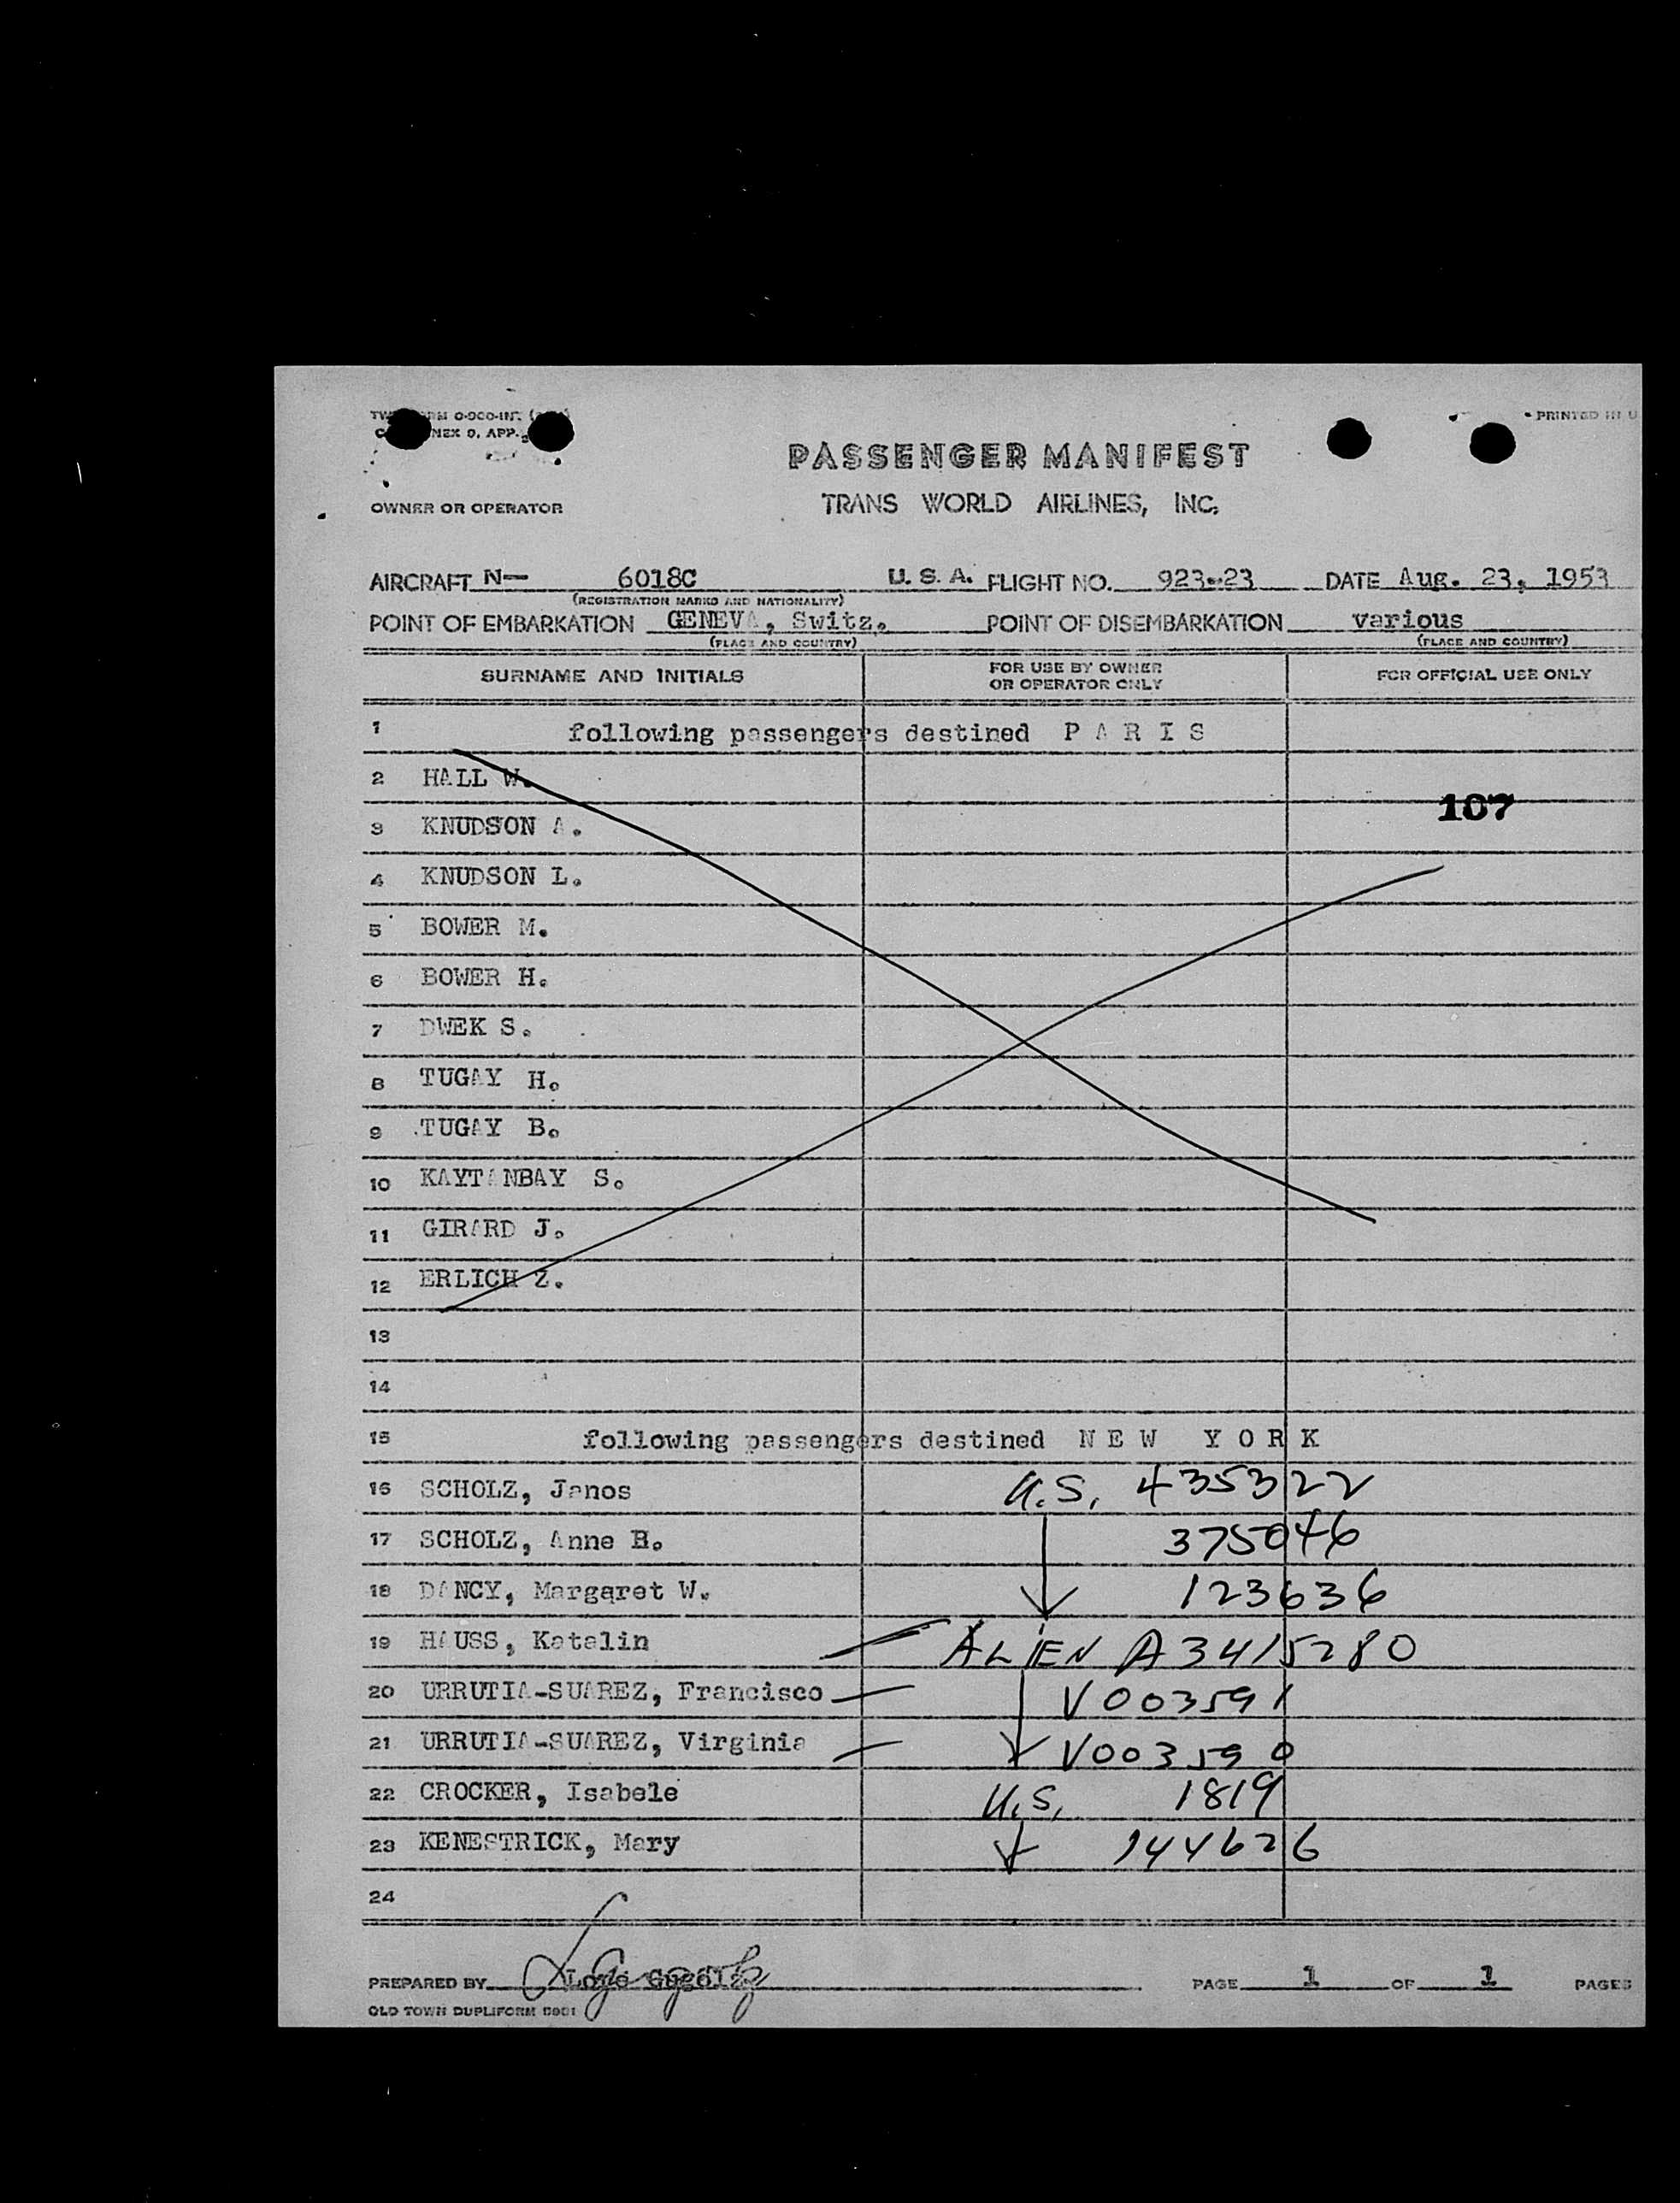 PRINTED IN U
NEX 9, APP.
PASSENGER MANIFEST
OWNER OR OPERATOR
TRANS WORLD AIRLINES, INC.
AIRCRAFT N— 6018C U. S. A. FLIGHT NO. 923-23 DATE Aug. 23, 1953
(REGISTRATION MARKS AND NATIONALITY)
POINT OF EMBARKATION GENEVA, Switz. POINT OF DISEMBARKATION various
(PLACE AND COUNTRY) (PLACE AND COUNTRY)
SURNAME AND INITIALS FOR USE BY OWNER OR OPERATOR ONLY FOR OFFICIAL USE ONLY
1 following passengers destined P A R I S
2 HALL W.
107
3 KNUDSON A.
4 KNUDSON L.
5 BOWER M.
6 BOWER H.
7 DWEK S.
8 TUGAY H.
9 TUGAY B.
10 KAYTANBAY S.
11 GIRARD J.
12 ERLICH Z.
13
14
15 following passengers destined N E W Y O R K
16 SCHOLZ, Janos U.S. 435322
17 SCHOLZ, Anne B. 375046
18 DANCY, Margaret W. 123636
19 HAUSS, Katalin ALIEN A3415280
20 URRUTIA-SUAREZ, Francisco V003591
21 URRUTIA-SUAREZ, Virginia V003590
22 CROCKER, Isabele U.S. 1819
23 KENESTRICK, Mary 144626
24
PREPARED BY PAGE 1 OF 1 PAGES
OLD TOWN DUPLIFORM